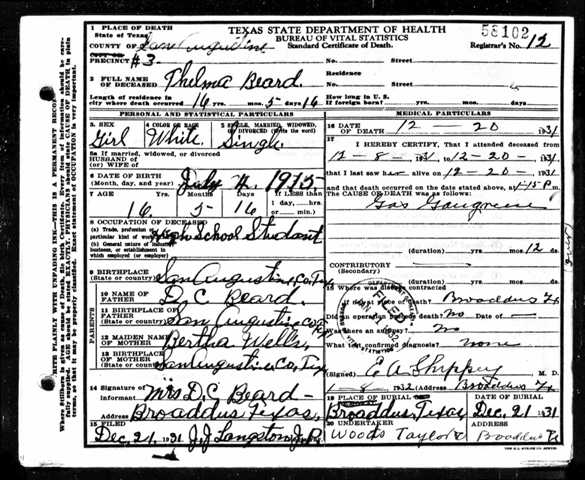 1 PLACE OF DEATH
State of Texas
COUNTY OF San Augustine
PRECINCT #3
TEXAS STATE DEPARTMENT OF HEALTH
BUREAU OF VITAL STATISTICS
Standard Certificate of Death.
58102
Registrar's No. 12
No. Street
2 FULL NAME OF DECEASED Thelma Beard.
Residence No. Street
Length of residence in city where death occurred 16 yrs. mos. 5 days 16
How long in U. S. if foreign born? yrs. mos. days
PERSONAL AND STATISTICAL PARTICULARS
3 SEX Girl
4 COLOR OR RACE White
5 SINGLE, MARRIED, WIDOWED OR DIVORCED (Write the word) Single
5a If married, widowed, or divorced
HUSBAND OF
(or) WIFE OF
6 DATE OF BIRTH
(Month, day, and year) July 4 1915
7 AGE Years Months Days If LESS than
1 day, ....hrs
or ....min.
16 5 16
8 OCCUPATION OF DECEASED
(a) Trade, profession, or particular kind of work High School Student
(b) General nature of industry, business, or establishment in which employed (or employer)
9 BIRTHPLACE
(State or country) San Augustine Co, Tex
PARENTS
10 NAME OF FATHER D. C. Beard.
11 BIRTHPLACE OF FATHER
(State or country) San Augustine Co, Tex
12 MAIDEN NAME OF MOTHER Bertha Wells,
13 BIRTHPLACE OF MOTHER
(State or country) San Augustine Co, Tex
14 Signature of Informant Mrs D. C. Beard-
Address Broaddus, Texas,
15 FILED Dec, 21, 1931 J. J. Langston J.P.
MEDICAL PARTICULARS
16 DATE OF DEATH 12 - 20 1931
17 I HEREBY CERTIFY, That I attended deceased from
12-8-1931, to 12-20-1931
that I last saw her alive on 12-20- 1931
and that death occurred on the date stated above, at 1-15 P.M.
THE CAUSE OF DEATH was as follows:
Gas Gangrene
(duration) yrs. mos. 12 ds.
CONTRIBUTORY
(Secondary)
(duration) yrs. mos. ds.
18 Where was disease contracted
if not at place of death? Broaddus Tx
Did an operation precede death? No Date of -
Was there an autopsy? No
What test confirmed diagnosis? none
(Signed) M. D.
1-8- 1932 (Address) Broaddus Tx
19 PLACE OF BURIAL
Broaddus, Texas Dec, 21 1931
20 UNDERTAKER
ADDRESS
Woods Taylor Broaddus Tx